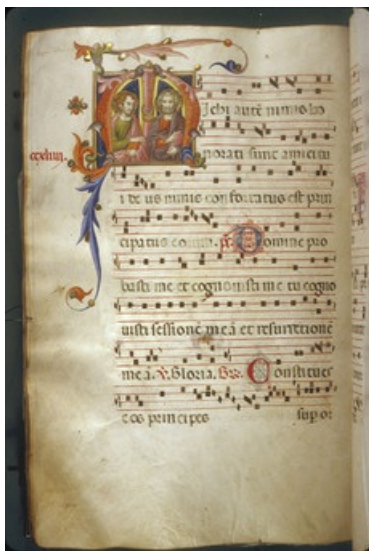 ichi autē nimis ho
norati sunt amici tu
i de us nimis confortatus est prin
cipatus eorum. ps. Domine pro
basti me et cognovisti me tu cogno
visti sessionē meā et resurrectionē
meā. v. Gloria. Gre. Constitues
e os principes sup or